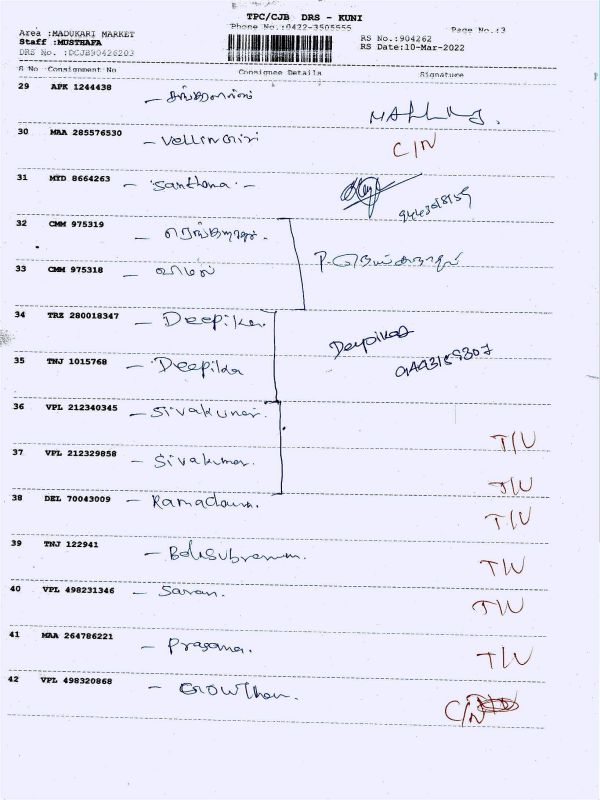 TPC/CJB DRS - KUNI
Phone No.:0422-3505555
Page No.:3
Area :MADUKARI MARKET
Staff :MUSTHAFA
DRS No. :DCJB90426203
RS No.:904262
RS Date:10-Mar-2022
S No Consignment No Consignee Details Signature
29 APK 1244438
30 MAA 285576530 - Vellingiri C/N
31 MYD 8664263 - Santhana -
32 CMM 975319
33 CMM 975318
34 TRZ 280018347 - Deepika Deepikaa
35 TNJ 1015768 - Deepika
36 VPL 212340345 - Sivakumar. T/U
37 VPL 212329858 - Sivakumar. T/U
38 DEL 70043009 T/U
39 TNJ 122941 T/U
40 VPL 498231346 - Saran. T/U
41 MAA 264786221 - Prasana. T/U
42 VPL 498320868 - Gowtham. C/N